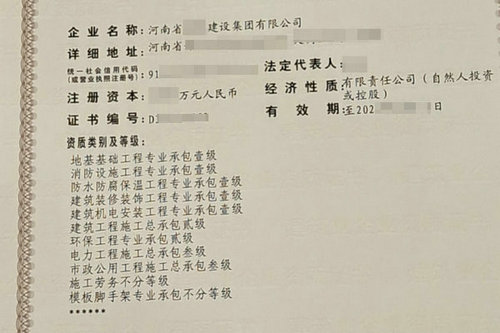 企业名称:河南省 建设集团有限公司
详细地址:河南省
统一社会信用代码
(或营业执照注册号): 91
法定代表人:
注册资本: 万元人民币
经济性质:有限责任公司(自然人投资
或控股)
证书编号: D3
有效期:至202 日
资质类别及等级:
地基基础工程专业承包壹级
消防设施工程专业承包壹级
防水防腐保温工程专业承包壹级
建筑装修装饰工程专业承包壹级
建筑机电安装工程专业承包壹级
建筑工程施工总承包贰级
环保工程专业承包贰级
电力工程施工总承包叁级
市政公用工程施工总承包叁级
施工劳务不分等级
模板脚手架专业承包不分等级
******